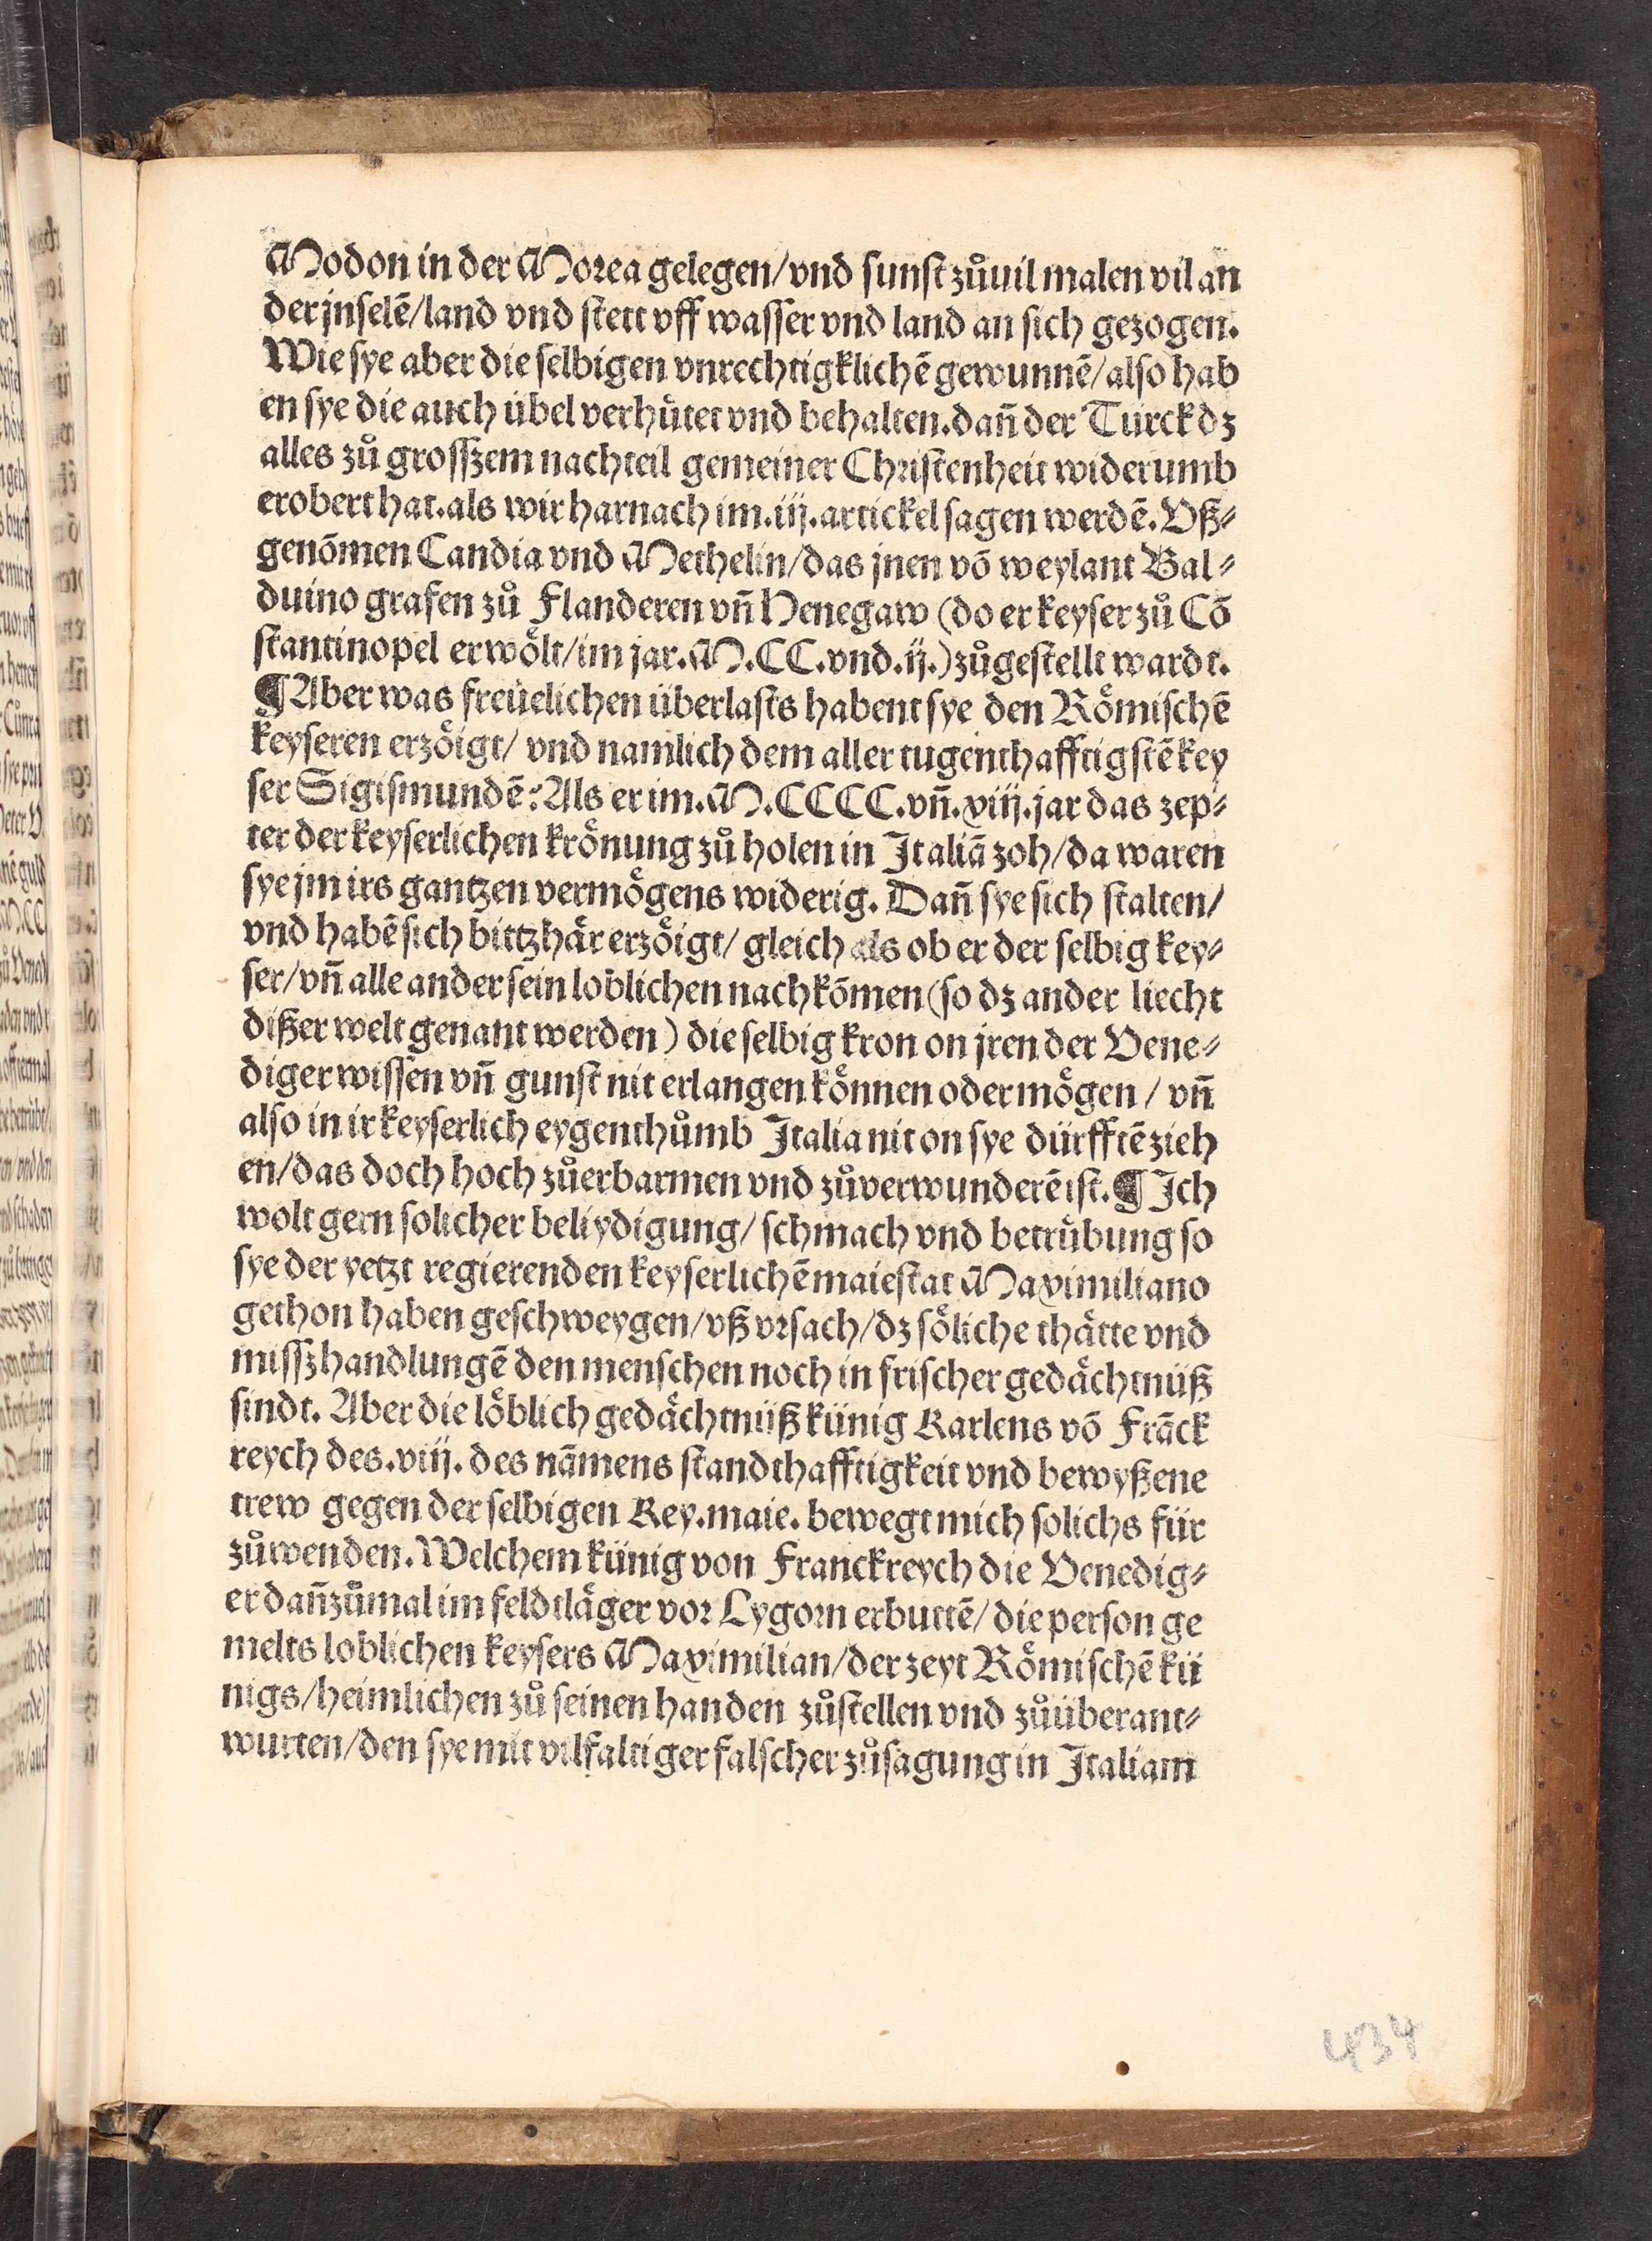 Modon in der Morea gelegen/vnd sunst zůuil malen vil an
der jnselē/land vnd stett vff wasser vnd land an sich gezogen.
Wie sye aber die selbigen vnrechtigklichē gewunnē/also hab
en sye die auch übel verhütet vnd behalten.dañ der Türck dz
alles zů grosszem nachteil gemeiner Christenheit widerumb
erobert hat.als wir harnach im.iij.artickel sagen werdē.Vß⸗
genōmen Candia vnd Methelin/das jnen vō weylant Bal⸗
duino grafen zů Flanderen vñ Henegaw (do er keyser zů Cō
stantinopel erwölt/im jar.M.CC.vnd.ij.)zůgestellt wardt.
¶Aber was freüelichen überlasts habent sye den Römischē
keyseren erzöigt/ vnd namlich dem aller tugenthafftigstē key
ser Sigismundē:Als er im.M.CCCC.vñ.xiij.jar das zep⸗
ter der keyserlichen krönung zů holen in Italiā zoh/da waren
sye jm irs gantzen vermögens widerig. Dañ sye sich stalten/
vnd habē sich bittzhär erzöigt/ gleich als ob er der selbig key⸗
ser/vñ alle ander sein loblichen nachkōmen (so dz ander liecht
dißer welt genant werden) die selbig kron on jren der Vene⸗
diger wissen vñ gunst nit erlangen können oder mögen / vñ
also in ir keyserlich eygenthůmb Italia nit on sye dürfftē zieh
en/das doch hoch zůerbarmen vnd zůverwunderē ist.¶Ich
wolt gern solicher beliydigung/ schmach vnd betrübung so
sye der yetzt regierenden keyserlichē maiestat Maximiliano
gethon haben geschweygen/vß vrsach/dz söliche thätte vnd
misszhandlungē den menschen noch in frischer gedächtnüß
sindt. Aber die löblich gedächtnüß künig Karlens vō Frāck
reych des.viij. des nāmens standthafftigkeit vnd bewyßene
trew gegen der selbigen Key.maie. bewegt mich solichs für
zůwenden.Welchem künig von Franckreych die Venedig⸗
er dañzůmal im feldtläger vor Lygorn erbuttē/ die person ge
melts loblichen keysers Maximilian/der zeyt Römischē kü
nigs/heimlichen zů seinen handen zůstellen vnd zůüberant⸗
wurten/den sye mit vilfaltiger falscher zůsagung in Italiam
434